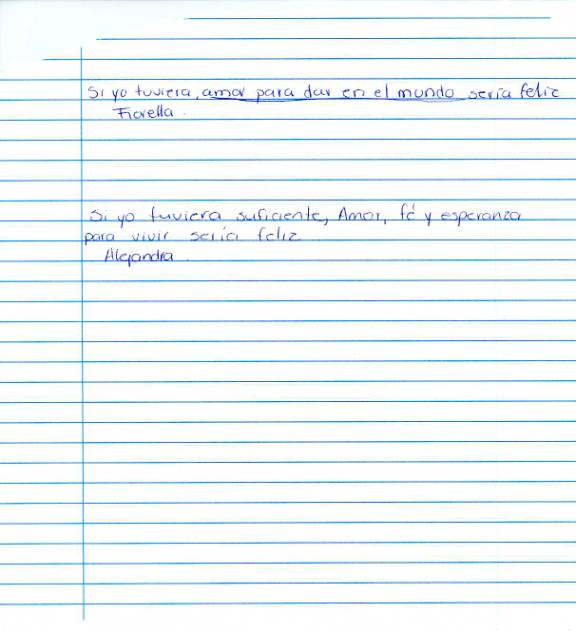 Si yo tuviera, amor para dar en el mundo sería feliz
Fiorella.
Si yo tuviera suficiente, Amor, fé y esperanza
para vivir sería feliz
Alejandra.